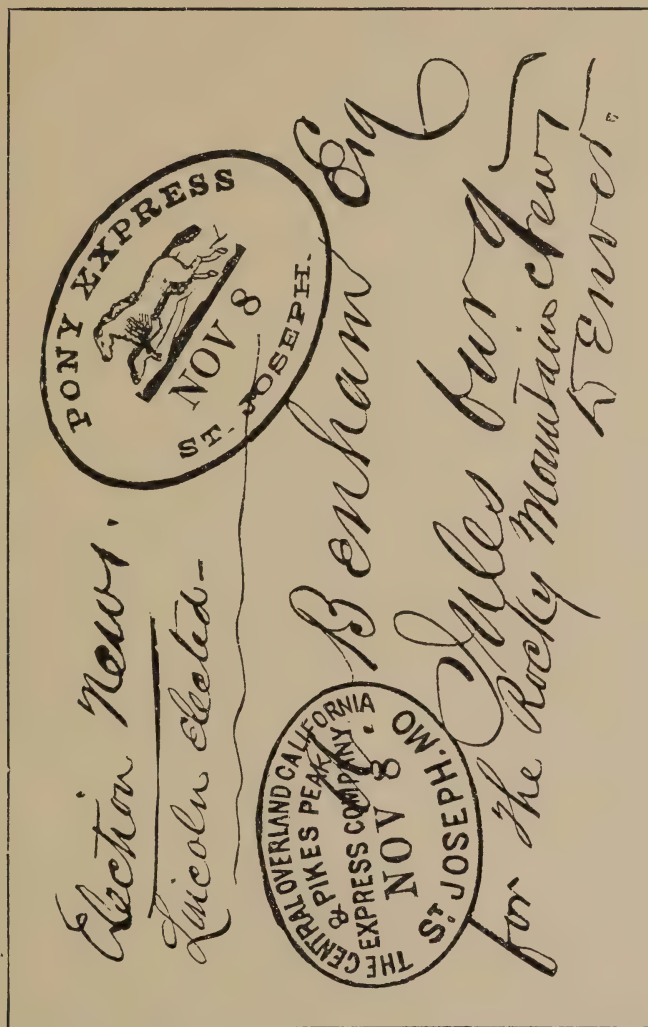 Election News.
Lincoln elected—
PONY EXPRESS
NOV 8
ST. JOSEPH.
THE CENTRAL OVERLAND CALIFORNIA
& PIKES PEAK
EXPRESS COMPANY.
NOV 8
ST JOSEPH. MO
Benham Esq
Julesburg
for The Rocky Mountain News
Denver.